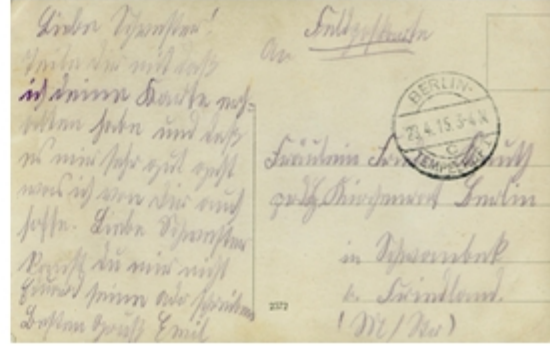 Liebe Schwester!
Teile dir mit daß
ich deine Karte erh-
alten habe und daß
es mir sehr gut geht
was ich von dir auch
hoffe. Liebe Schwester
kannst du mir nicht
seine schreiben
Besten Gruß Emil
Feldpostkarte
An
BERLIN-
4.15. 3-4 N
c
TEMPELHOF
Fräulein
Berlin
in Schwanbek
b. Friedland.
(M/Str)
2372